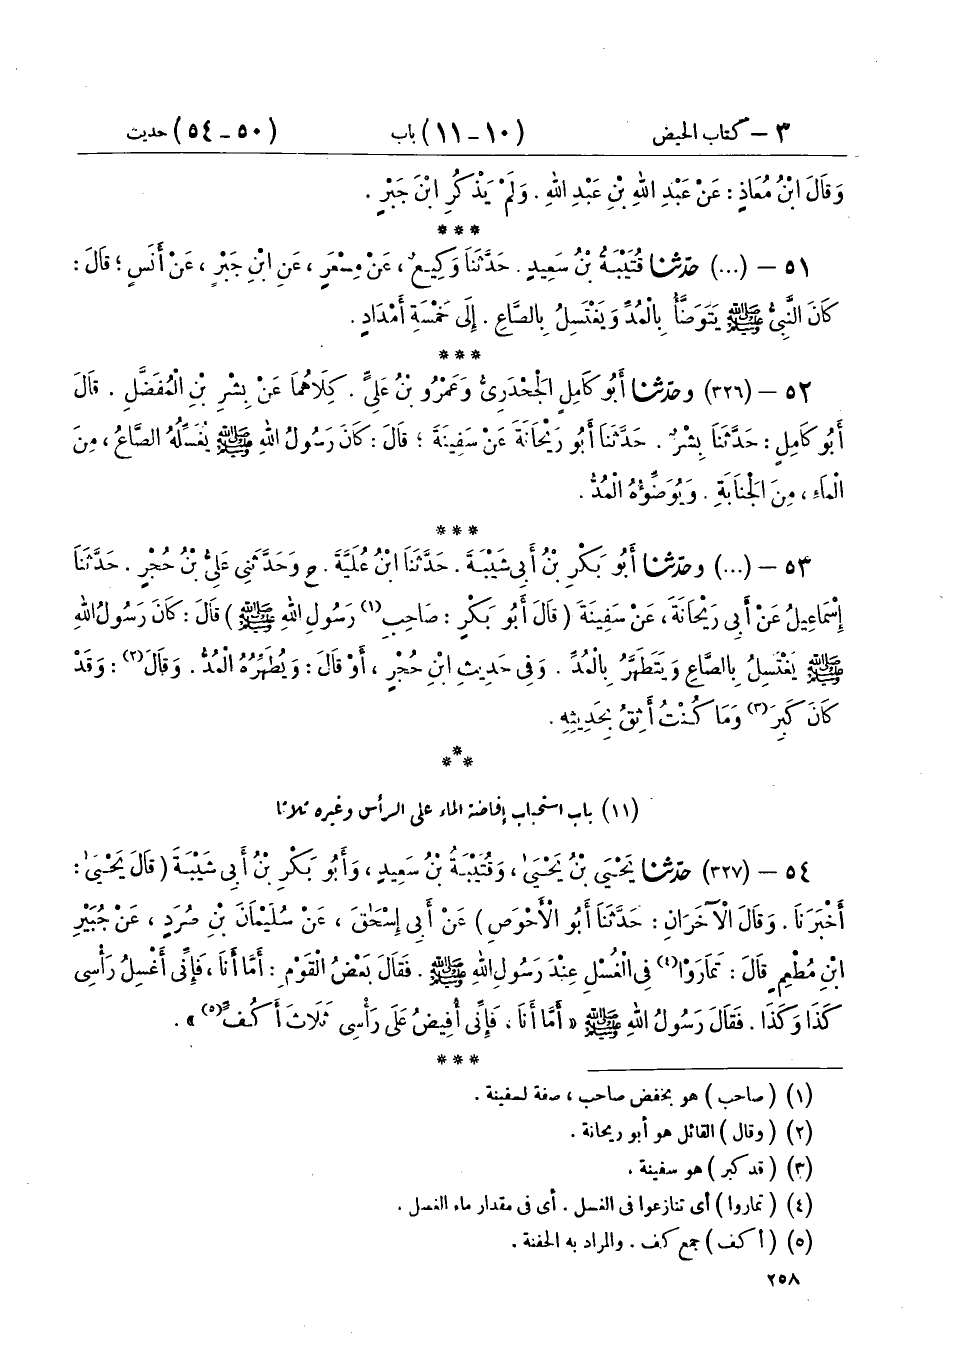 ٣ – كتاب الحيض (١٠-١١) باب (٥٠-٥٤) حديث
وَقَالَ ابْنُ مُعَاذٍ : عَنْ عَبْدِ اللهِ بْنِ عَبْدِ اللهِ . وَلَمْ يَذْكُرِ ابْنَ جَبْرٍ .
***
٥١ – (...) حَدَّثَنَا قُتَيْبَةُ بْنُ سَعِيدٍ . حَدَّثَنَا وَكِيعٌ ، عَنْ مِسْعَرٍ ، عَنِ ابْنِ جَبْرٍ ، عَنْ أَنَسٍ ؛ قَالَ :
كَانَ النَّبِيُّ ﷺ يَتَوَضَّأُ بِالْمُدِّ وَيَغْتَسِلُ بِالصَّاعِ . إِلَى خَمْسَةِ أَمْدَادٍ .
***
٥٢ – (٣٢٦) وحَدَّثَنَا أَبُو كَامِلٍ الْجَحْدَرِيُّ وَعَمْرُو بْنُ عَلِيٍّ . كِلَاهُمَا عَنْ بِشْرِ بْنِ الْمُفَضَّلِ . قَالَ
أَبُو كَامِلٍ : حَدَّثَنَا بِشْرٌ . حَدَّثَنَا أَبُو رَيْحَانَةَ عَنْ سَفِينَةَ ؛ قَالَ : كَانَ رَسُولُ اللهِ ﷺ يُغَسِّلُهُ الصَّاعُ ، مِنَ
الْمَاءِ ، مِنَ الْجَنَابَةِ . وَيُوَضِّؤُهُ الْمُدُّ .
***
٥٣ – (...) وحَدَّثَنَا أَبُو بَكْرِ بْنُ أَبِي شَيْبَةَ . حَدَّثَنَا ابْنُ عُلَيَّةَ . ح وَحَدَّثَنِي عَلِيُّ بْنُ حُجْرٍ . حَدَّثَنَا
إِسْمَاعِيلُ عَنْ أَبِي رَيْحَانَةَ ، عَنْ سَفِينَةَ ( قَالَ أَبُو بَكْرٍ : صَاحِبِ (١) رَسُولِ اللهِ ﷺ ) قَالَ : كَانَ رَسُولُ اللهِ
ﷺ يَغْتَسِلُ بِالصَّاعِ وَيَتَطَهَّرُ بِالْمُدِّ . وَفِي حَدِيثِ ابْنِ حُجْرٍ ، أَوْ قَالَ : وَيُطَهِّرُهُ الْمُدُّ . وَقَالَ (٢) : وَقَدْ
كَانَ كَبِرَ (٣) وَمَا كُنْتُ أَثِقُ بِحَدِيثِهِ .
***
(١١) باب استحباب إفاضة الماء على الرأس وغيره ثلاثا
٥٤ – (٣٢٧) حَدَّثَنَا يَحْيَى بْنُ يَحْيَى ، وَقُتَيْبَةُ بْنُ سَعِيدٍ ، وَأَبُو بَكْرِ بْنُ أَبِي شَيْبَةَ ( قَالَ يَحْيَى :
أَخْبَرَنَا . وَقَالَ الْآخَرَانِ : حَدَّثَنَا أَبُو الْأَحْوَصِ ) عَنْ أَبِي إِسْحَاقَ ، عَنْ سُلَيْمَانَ بْنِ صُرَدٍ ، عَنْ جُبَيْرِ
ابْنِ مُطْعِمٍ قَالَ : تَمَارَوْا (٤) فِي الْغُسْلِ عِنْدَ رَسُولِ اللهِ ﷺ . فَقَالَ بَعْضُ الْقَوْمِ : أَمَّا أَنَا ، فَإِنِّي أَغْسِلُ رَأْسِي
كَذَا وَكَذَا . فَقَالَ رَسُولُ اللهِ ﷺ « أَمَّا أَنَا ، فَإِنِّي أُفِيضُ عَلَى رَأْسِي ثَلَاثَ أَكُفٍّ (٥) » .
***
(١) ( صاحب ) هو بخفض صاحب ، صفة لسفينة .
(٢) ( وقال ) القائل هو أبو ريحانة .
(٣) ( قد كبر ) هو سفينة .
(٤) ( تماروا ) أى تنازعوا فى الغسل . أى فى مقدار ماء الغسل .
(٥) ( أكف ) جمع كف . والمراد به الحفنة .
٢٥٨